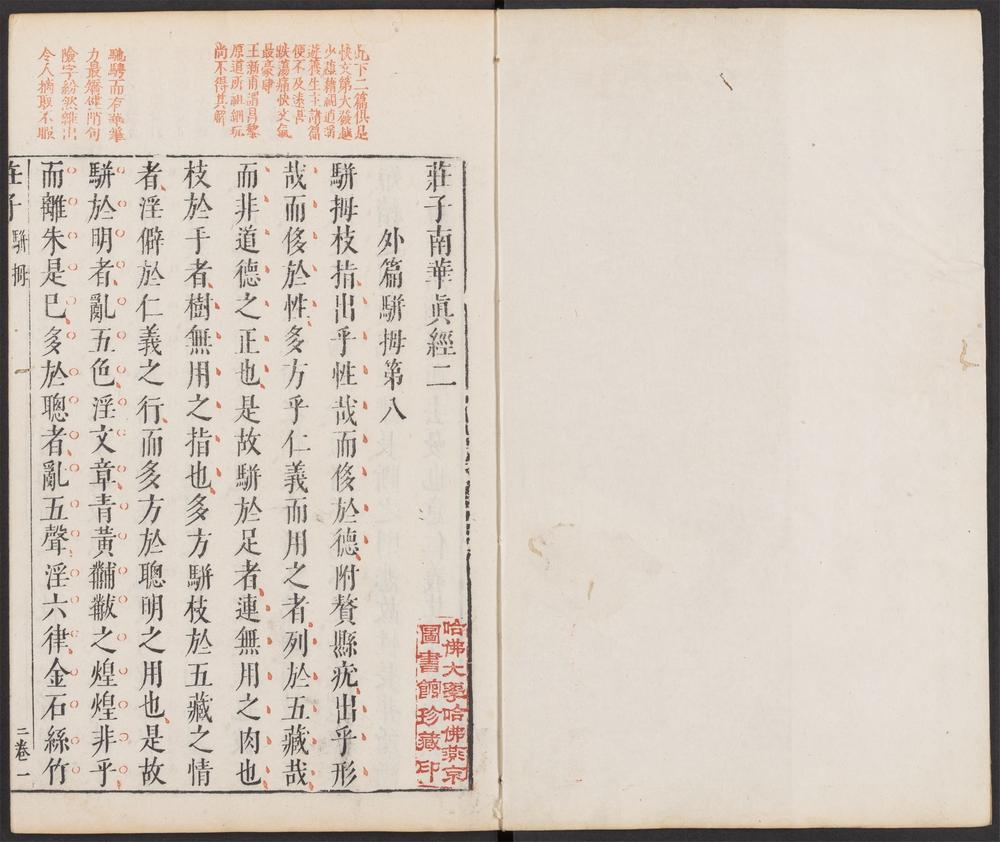 莊子南華眞經二
外篇駢拇第八
駢拇枝指出乎性哉而侈於德附贅縣疣出乎形
哉而侈於性多方乎仁義而用之者列於五藏哉
而非道德之正也是故駢於足者連無用之肉也
枝於手者樹無用之指也多方駢枝於五藏之情
者淫僻於仁義之行而多方於聰明之用也是故
駢於明者亂五色淫文章青黃黼黻之煌煌非乎
而離朱是已多於聰者亂五聲淫六律金石絲竹
此下二篇俱是
快文第大發越
少蘊藉視逍遙
遊養生主諸篇
便不及遠甚
跌蕩痛快文氣
最豪肆
王新甫謂昌黎
原道所祖細玩
尚不得其解
馳騁而有華筆
力最矯健閒句
險字紛然雜出
令人摘取不暇
莊子
駢拇
二卷
一
哈佛大學哈佛燕京
圖書館珍藏印